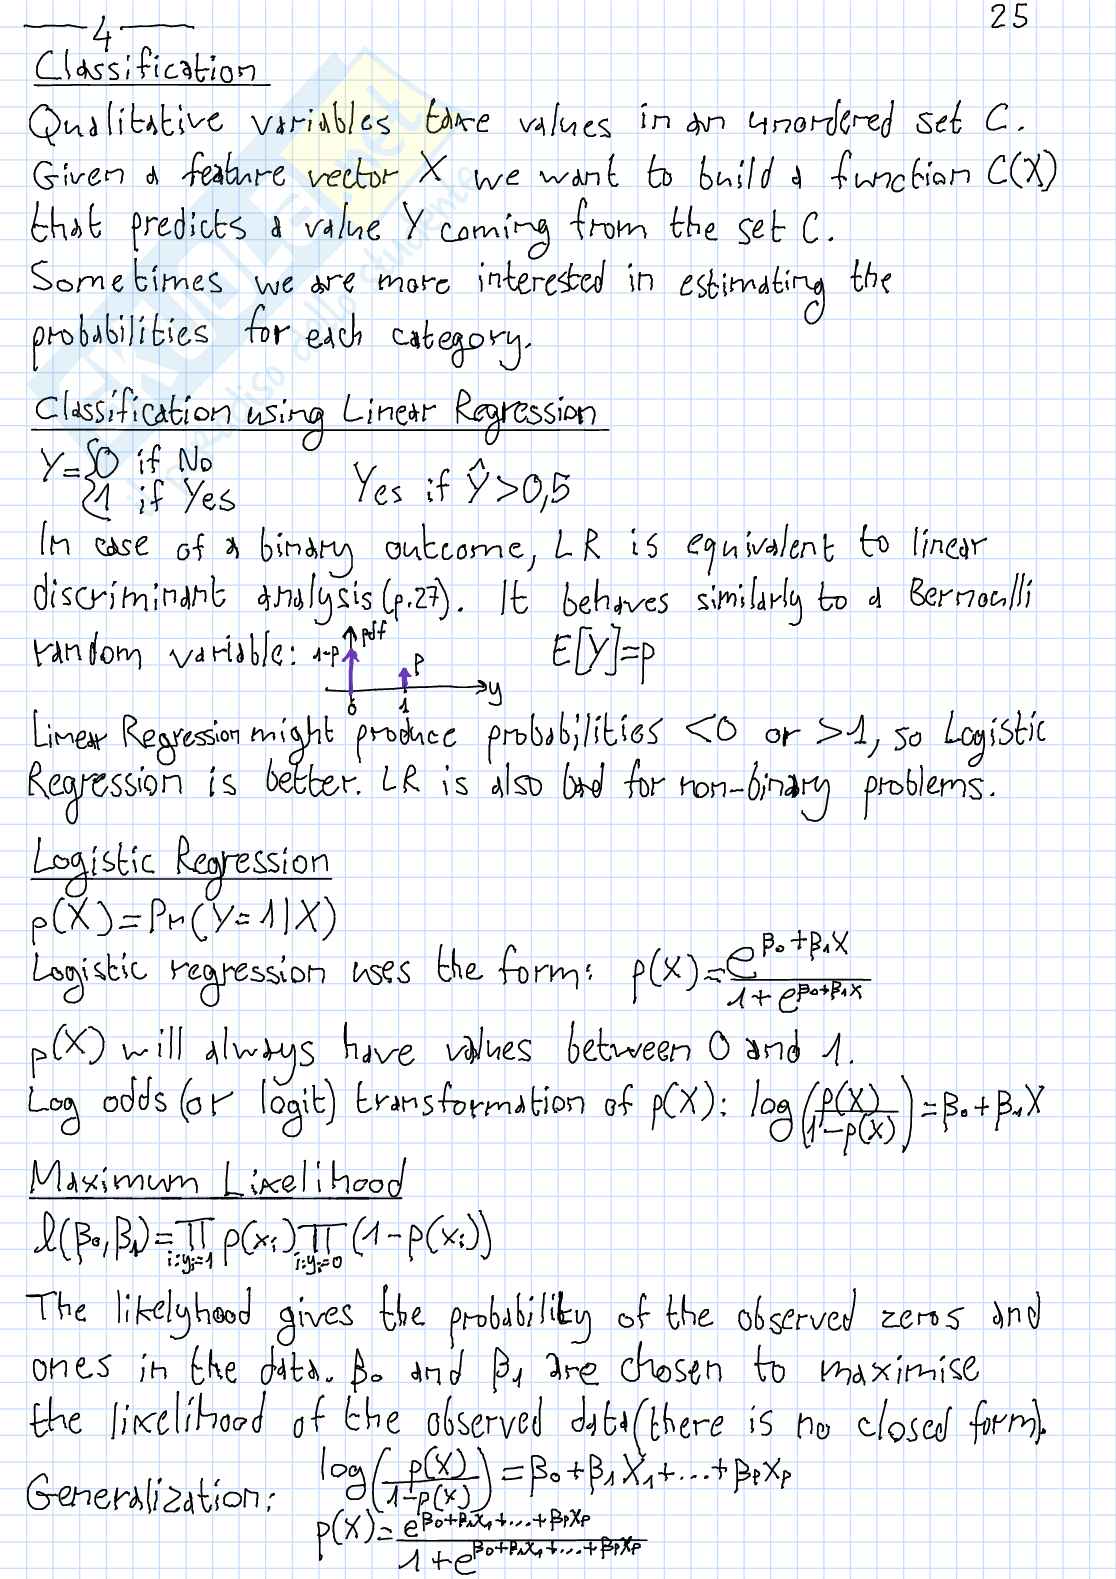 4
25
Classification
Qualitative variables take values in an unordered set C.
Given a feature vector X we want to build a function C(X)
that predicts a value Y coming from the set C.
Sometimes we are more interested in estimating the
probabilities for each category.
Classification using Linear Regression
Y={0 if No
{1 if Yes
Yes if Ŷ>0,5
In case of a binary outcome, LR is equivalent to linear
discriminant analysis (p.27). It behaves similarly to a Bernoulli
random variable: 1-p pdf p 0 1 y E[Y]=p
Linear Regression might produce probabilities <0 or >1, so Logistic
Regression is better. LR is also bad for non-binary problems.
Logistic Regression
p(X)=Pr(Y=1|X)
Logistic regression uses the form: p(X)=e^(β₀+β₁X)/(1+e^(β₀+β₁X))
p(X) will always have values between 0 and 1.
Log odds (or logit) transformation of p(X): log(p(X)/(1-p(X)))=β₀+β₁X
Maximum Likelihood
l(β₀,β₁)=∏ i:yᵢ=1 p(xᵢ) ∏ i:yᵢ=0 (1-p(xᵢ))
The likelyhood gives the probability of the observed zeros and
ones in the data. β₀ and β₁ are chosen to maximise
the likelihood of the observed data (there is no closed form).
Generalization: log(p(X)/(1-p(X)))=β₀+β₁X₁+...+βₚXₚ
p(X)=e^(β₀+β₁X₁+...+βₚXₚ)/(1+e^(β₀+β₁X₁+...+βₚXₚ))